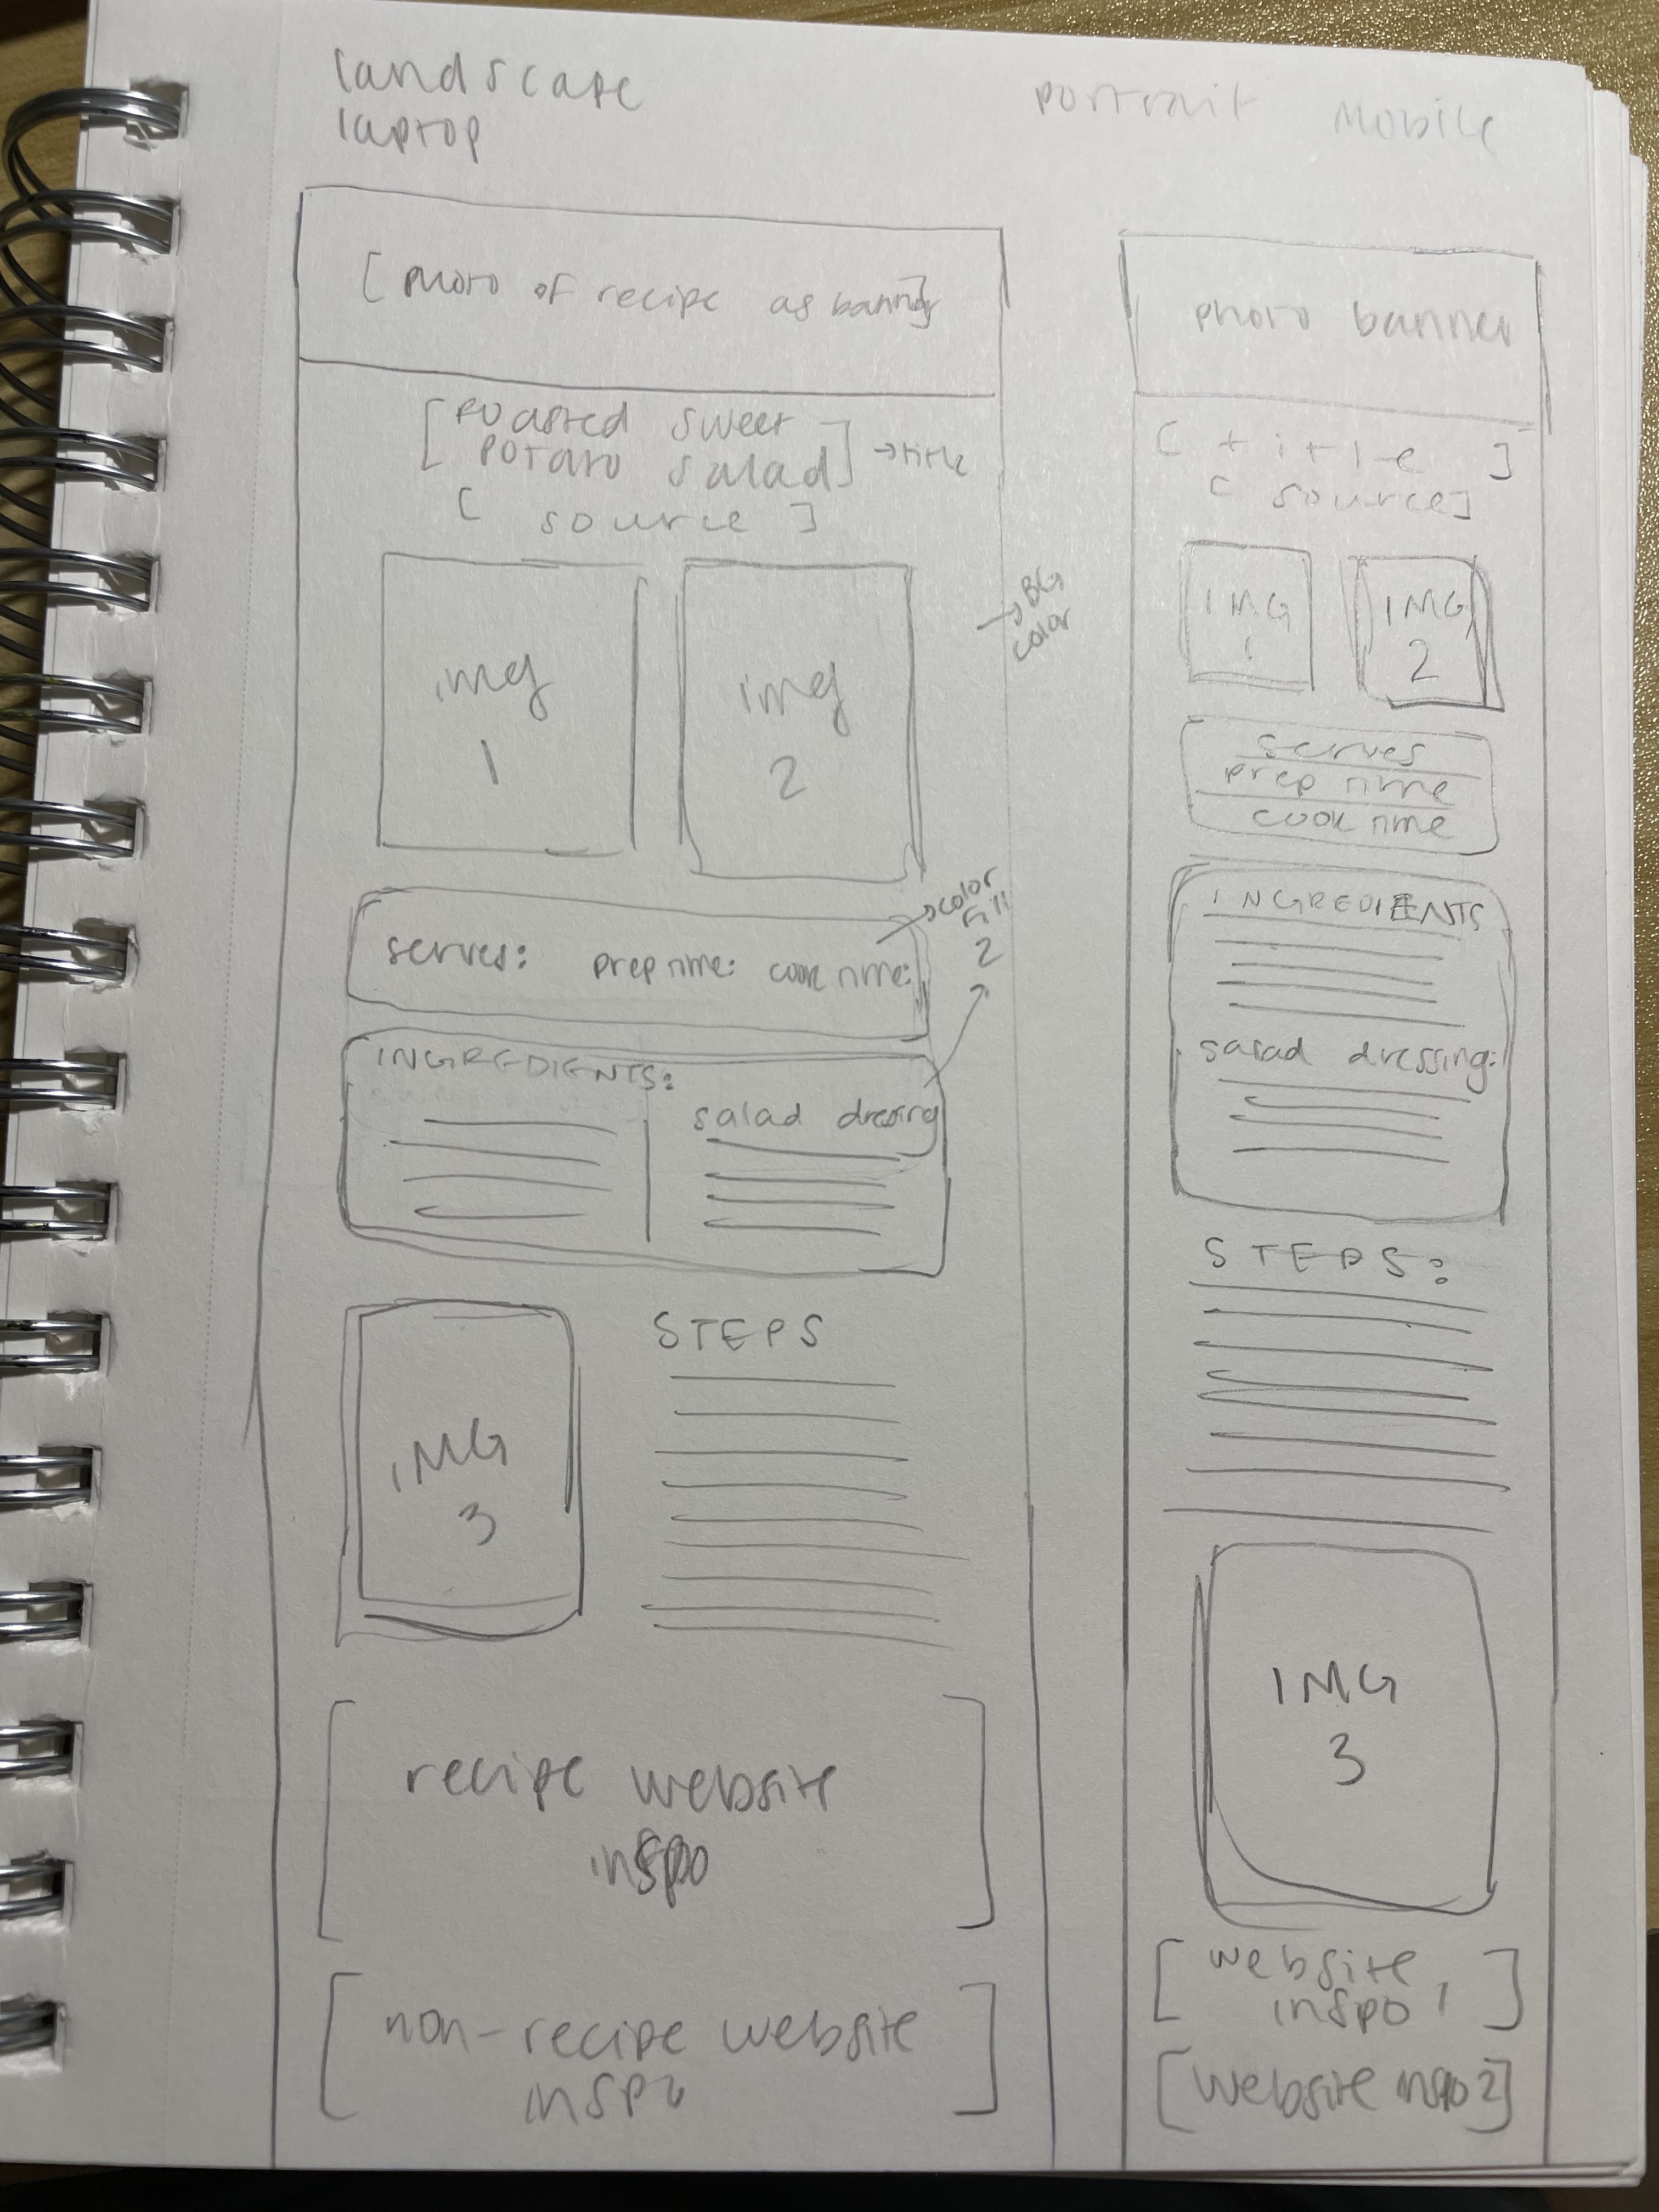 landscape
laptop
[photo of recipe as banner]
[roasted sweet
potato salad] → title
[source]
img
1
img
2
→ BG
color
serves: prep time: cook time:
→ color
fill
2
INGREDIENTS:
salad dressing
IMG
3
STEPS
[recipe website
inspo]
[non-recipe website
inspo]
portrait mobile
photo banner
[title]
[source]
IMG
1
IMG
2
serves
prep time
cook time
INGREDIENTS
salad dressing:
STEPS:
IMG
3
[website
inspo 1]
[website inspo 2]